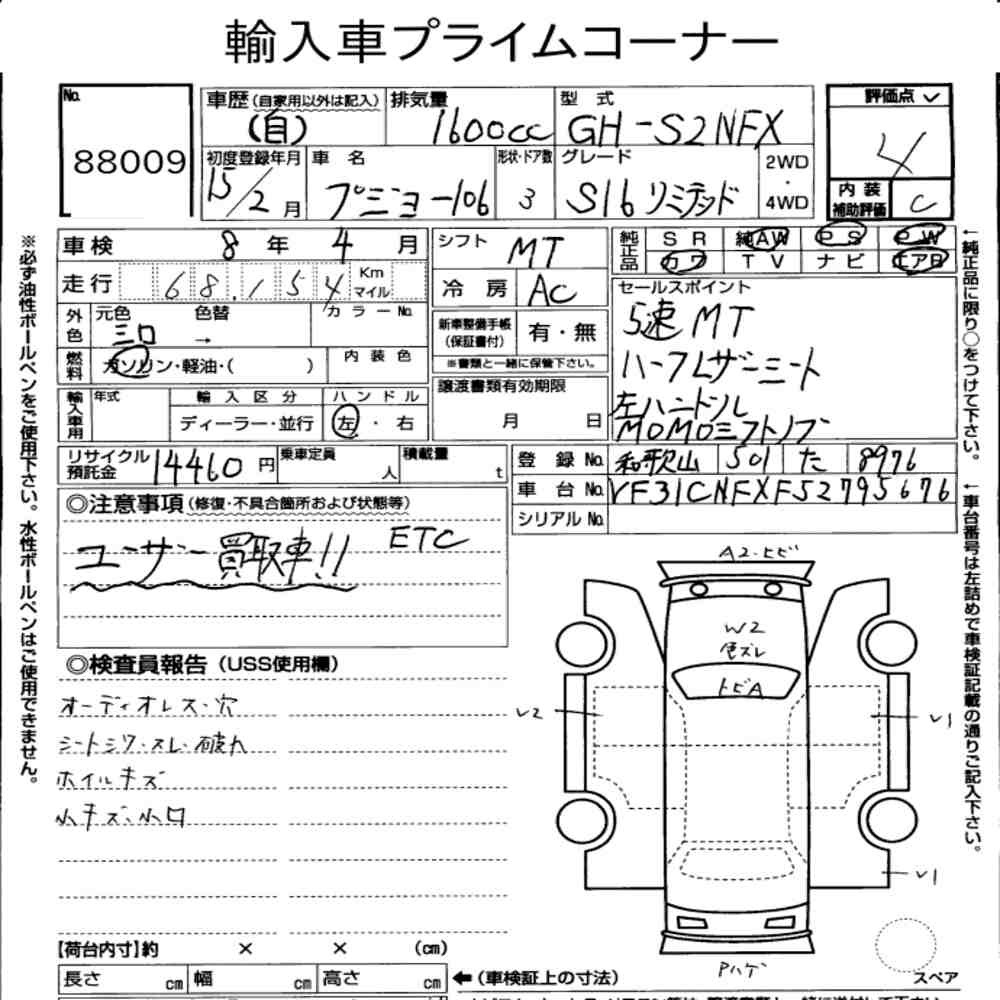 輸入車プライムコーナー
No. 88009
車歴(自家用以外は記入) (自)
排気量 1600cc
型式 GH-S2NFX
評価点 4
内装補助評価 C
初度登録年月 15/2月
車名 プジョー106
形状・ドア数 3
グレード S16リミテッド
2WD・4WD
車検 8年4月
シフト MT
純正品 SR 純AW PS PW
カワ TV ナビ エアB
走行 68,154 Km マイル
冷房 AC
セールスポイント
5速MT
ハーフレザーシート
左ハンドル
MOMOシフトノブ
外色 元色 シロ 色替 → カラーNo.
新車整備手帳(保証書付) 有・無
※書類と一緒に保管下さい。
燃料 ガソリン・軽油・( ) 内装色
譲渡書類有効期限 月 日
輸入車用 年式 輸入区分 ディーラー・並行 ハンドル 左・右
リサイクル預託金 14460円 乗車定員 人 積載量 t
登録No. 和歌山 501 た 8976
車台No. VF31CNFXF52795676
シリアルNo.
◎注意事項(修復・不具合箇所および状態等)
ユーザー買取車!! ETC
◎検査員報告(USS使用欄)
オーディオレス・穴
シートシワ・スレ・破れ
ホイルキズ
小キズ・小凹
A2・ヒビ
W2
色ズレ
トビA
U2
U1
U1
Pハゲ
スペア
【荷台内寸】約 × × (cm)
長さ cm 幅 cm 高さ cm ←(車検証上の寸法)
※必ず油性ボールペンをご使用下さい。水性ボールペンはご使用できません。
←純正品に限り○をつけて下さい。
←車台番号は左詰めで車検証記載の通りご記入下さい。